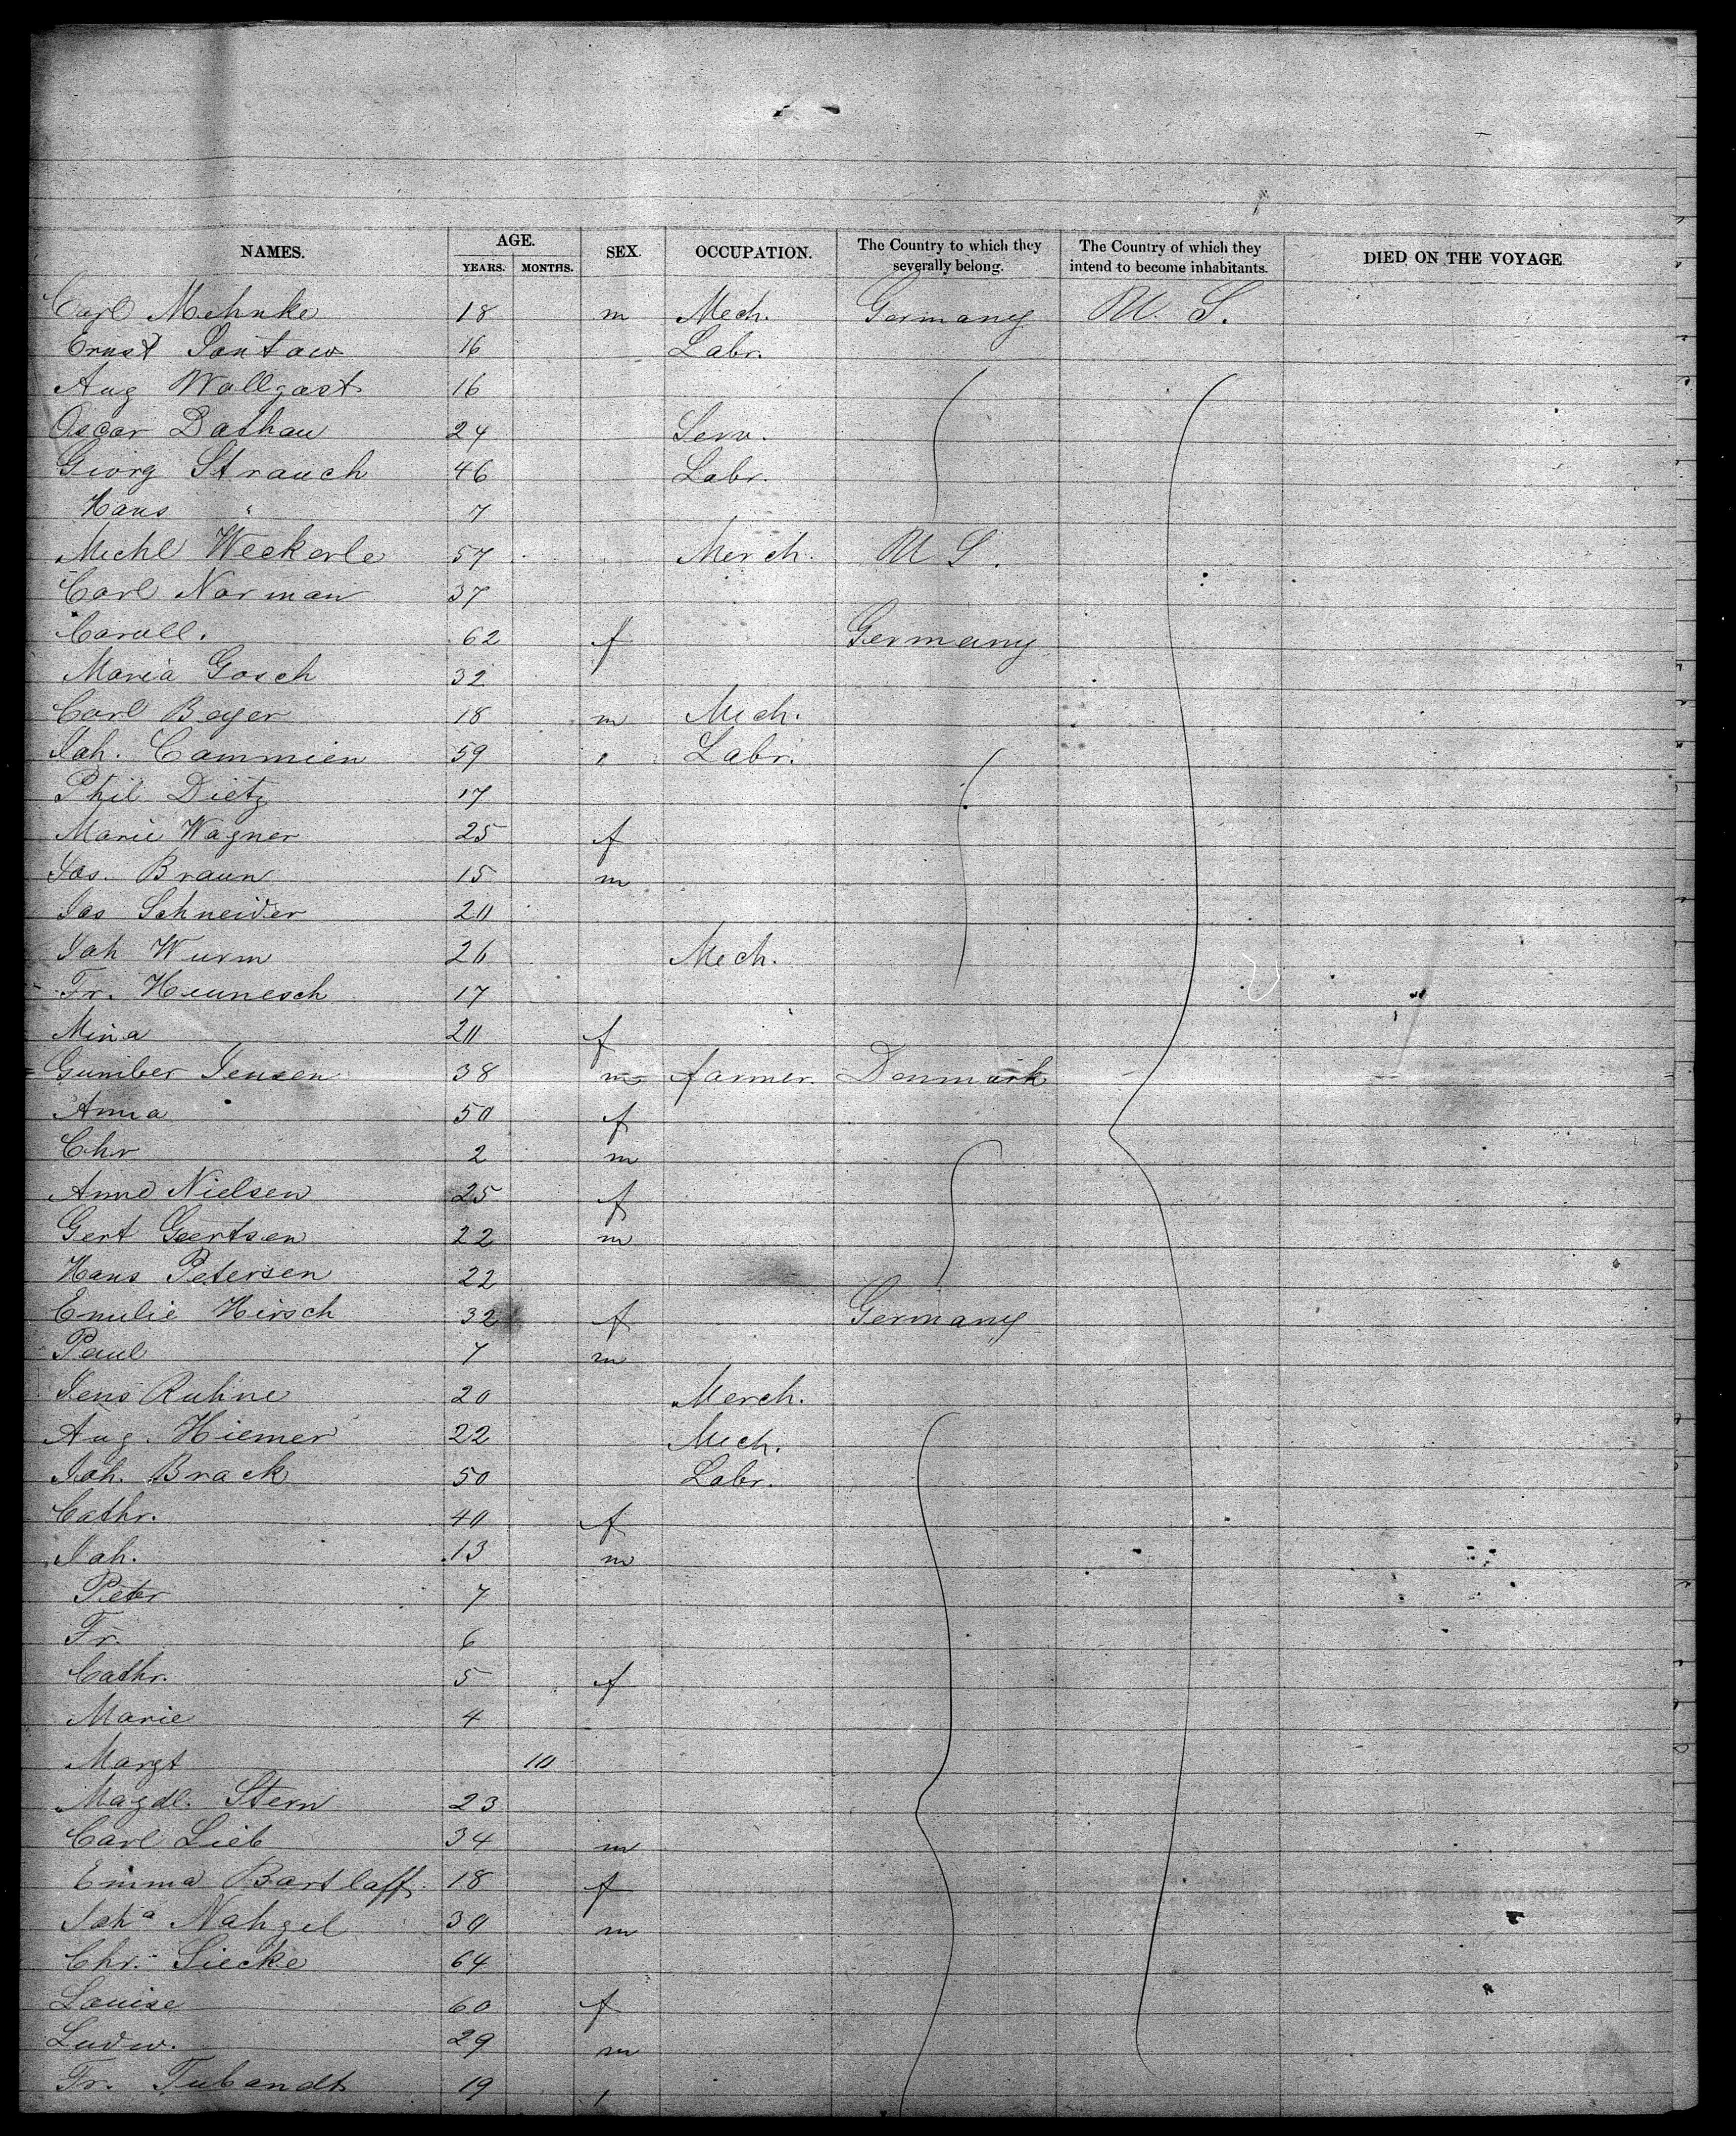 NAMES. AGE. SEX. OCCUPATION. The Country to which they severally belong. The Country of which they intend to become inhabitants. DIED ON THE VOYAGE
YEARS. MONTHS.
Carl Mehnke 18 m Mech. Germany U. S.
Ernst Santow 16 Labr.
Aug Wollgast 16
Oscar Dathau 24 Serv.
Giorg Strauch 46 Labr.
Hans " 7
Michl Weckerle 57 Merch. U S.
Carl Norman 37
Caroll. 62 f Germany
Maria Gosch 32
Carl Boyer 18 m Mech.
Joh. Cammien 59 " Labr.
Phil Dietz 17
Marie Wagner 25 f
Jos. Braun 15 m
Jos Schneider 20
Joh Wurm 26 Mech.
Fr. Heunesch 17
Mina 20 f
Guniber Jensen 38 m farmer. Denmark
Anna 50 f
Chr 2 m
Anne Nielsen 25 f
Gert Geertsen 22 m
Hans Petersen 22
Emilie Hirsch 32 f Germany
Paul 7 m
Jens Ruhne 20 Merch.
Aug. Hiemer 22 Mech.
Joh. Brack 50 Labr.
Cathr. 40 f
Joh. 13 m
Peter 7
Fr. 6
Cathr. 5 f
Marie 4
Margt 10
Magdl. Stern 23
Carl Lieb 34 m
Emma Bartlaff. 18 f
Joha Nahgel 30 m
Chr. Siecke 64
Louise 60 f
Ludw. 29 m
Fr. Tubandt 19 "